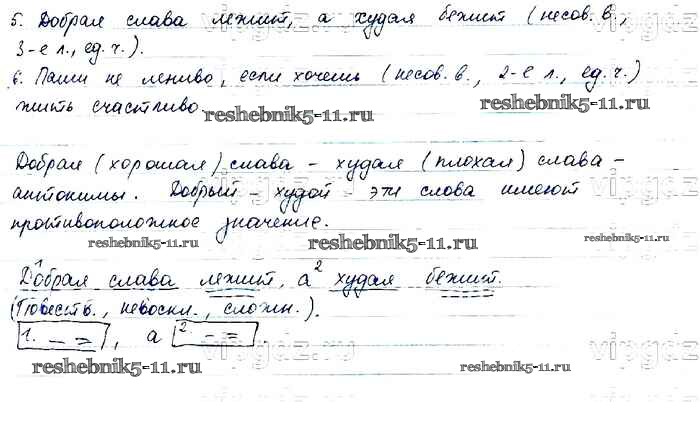 5. Добрая слава лежит, а худая бежит (несов. в.,
3-е л., ед. ч.).
6. Паши не лениво, если хочешь (несов. в., 2-е л., ед. ч.)
жить счастливо.
reshebnik5-11.ru reshebnik5-11.ru
Добрая (хорошая) слава – худая (плохая) слава –
антонимы. Добрый – худой – эти слова имеют
противоположное значение.
reshebnik5-11.ru reshebnik5-11.ru reshebnik5-11.ru
1 Добрая слава лежит, а 2 худая бежит.
(Повеств., невоскл., сложн.).
[1. – =], а [2. – =]
reshebnik5-11.ru reshebnik5-11.ru reshebnik5-11.ru